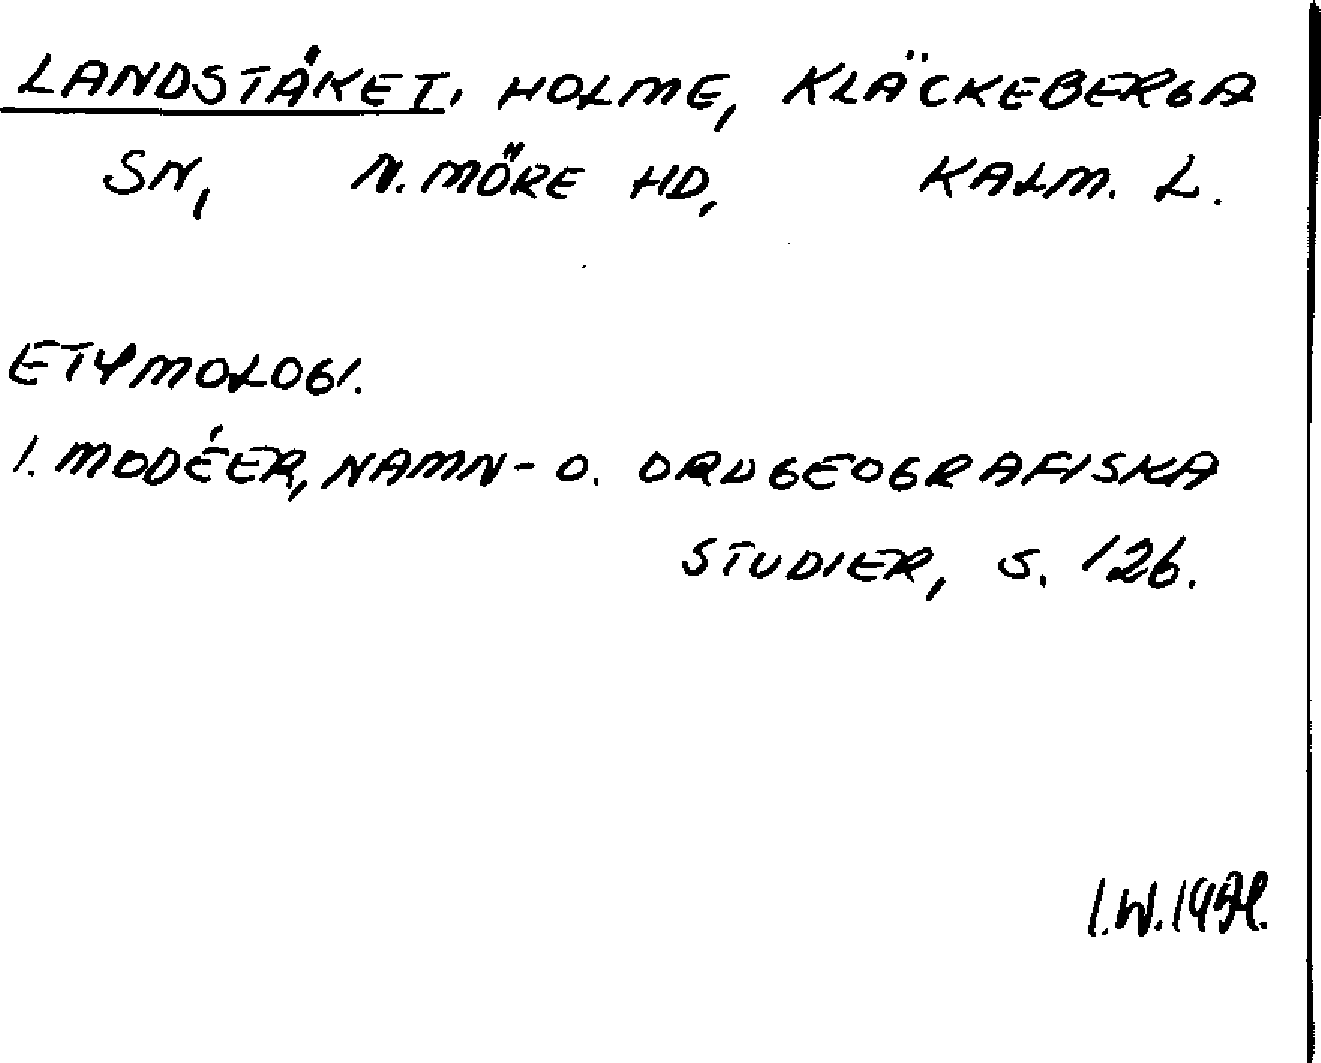 LANDSTÅKET, HOLME, KLÄCKEBERGA
SN, N. MÖRE HD, KALM. L.
ETYMOLOGI.
I. MODÉER, NAMN- O. ORDGEOGRAFISKA
STUDIER, S. 126.
I.W.